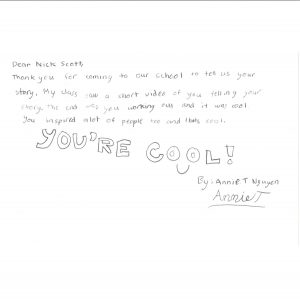 Dear Nick Scott,
Thank you for coming to our school to tell us your
story. My class saw a short video of you telling your
story. The end was you working out and it was cool.
You inspired alot of people too and thats cool.
YOU'RE COOL!
By: Annie T Nguyen
Annie T